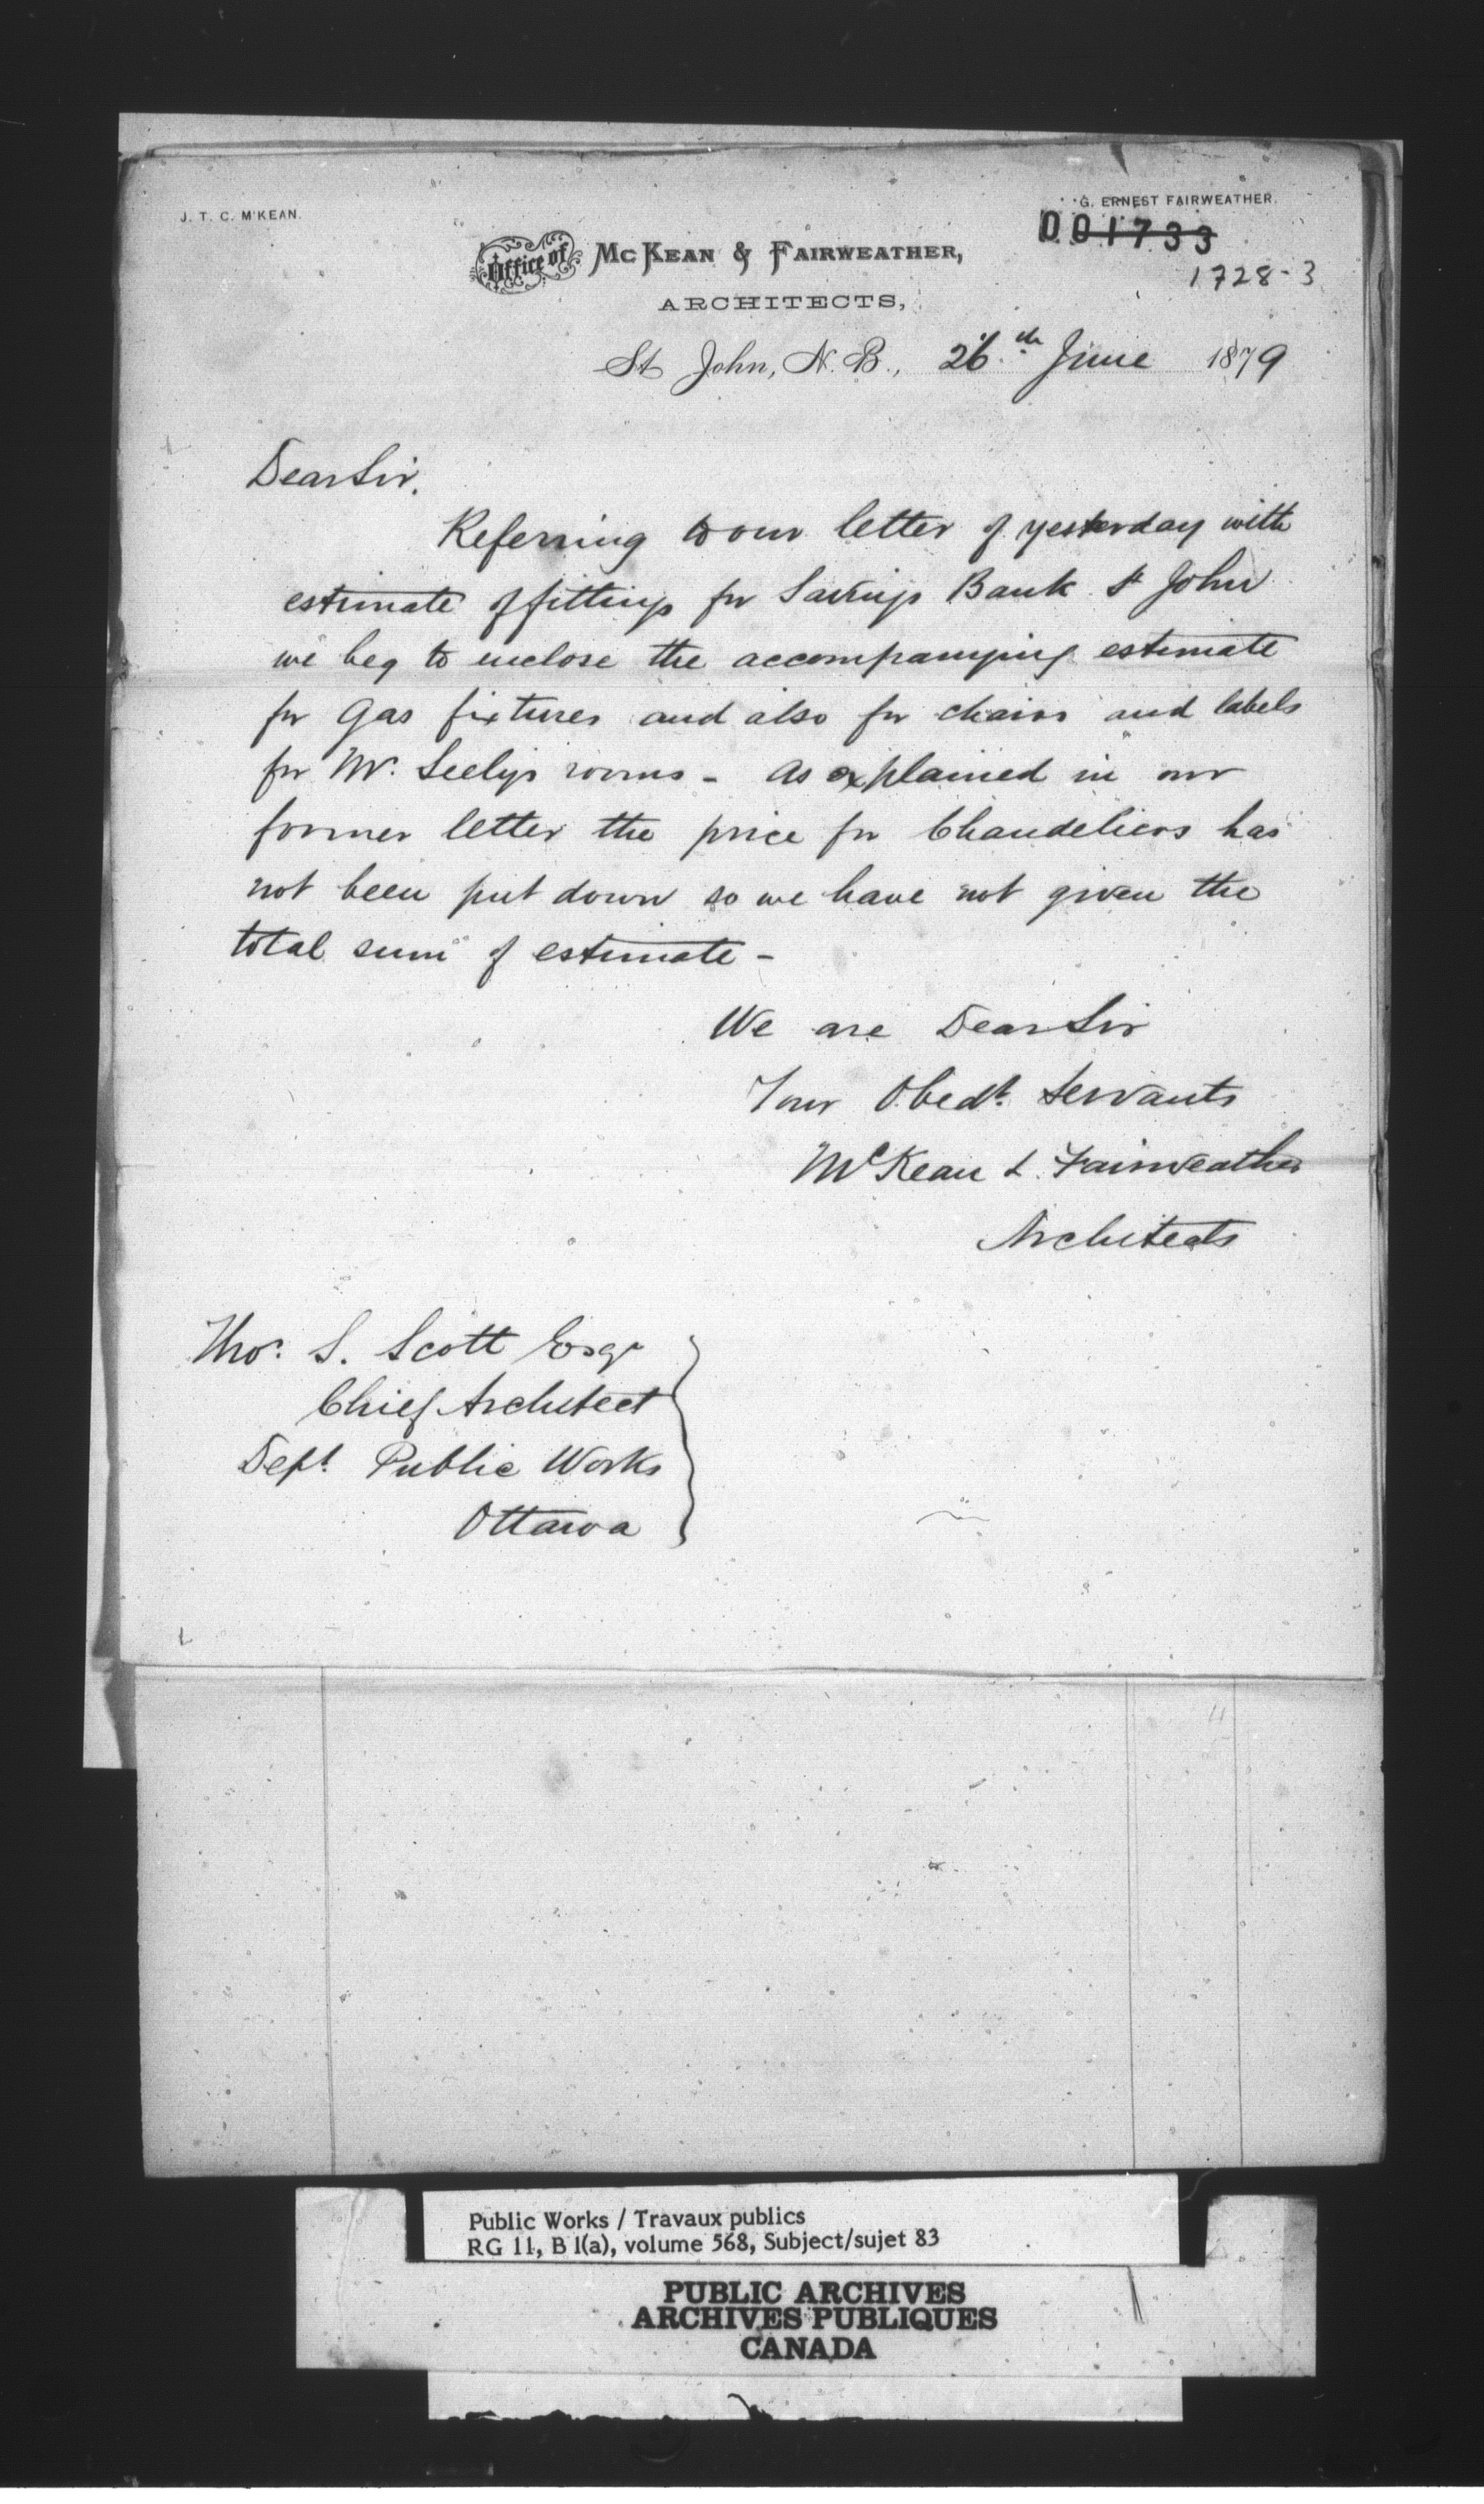 J. T. C. M'KEAN.
G. ERNEST FAIRWEATHER.
001733
1728-3
Office of McKEAN & FAIRWEATHER,
ARCHITECTS,
St John, N. B., 26th June 1879
Dear Sir.
Referring to our letter of yesterday with
estimate of fittings for Savings Bank St John
we beg to enclose the accompanying estimate
for Gas fixtures and also for chairs and labels
for Mr. Seely's rooms - As explained in our
former letter the price for Chandeliers has
not been put down so we have not given the
total sum of estimate -
We are Dear Sir
Your Obedt. Servants
McKean & Fairweather
Architects
Thos. S. Scott Esqr
Chief Architect
Dept. Public Works
Ottawa
Public Works / Travaux publics
RG 11, B 1(a), volume 568, Subject/sujet 83
PUBLIC ARCHIVES
ARCHIVES PUBLIQUES
CANADA